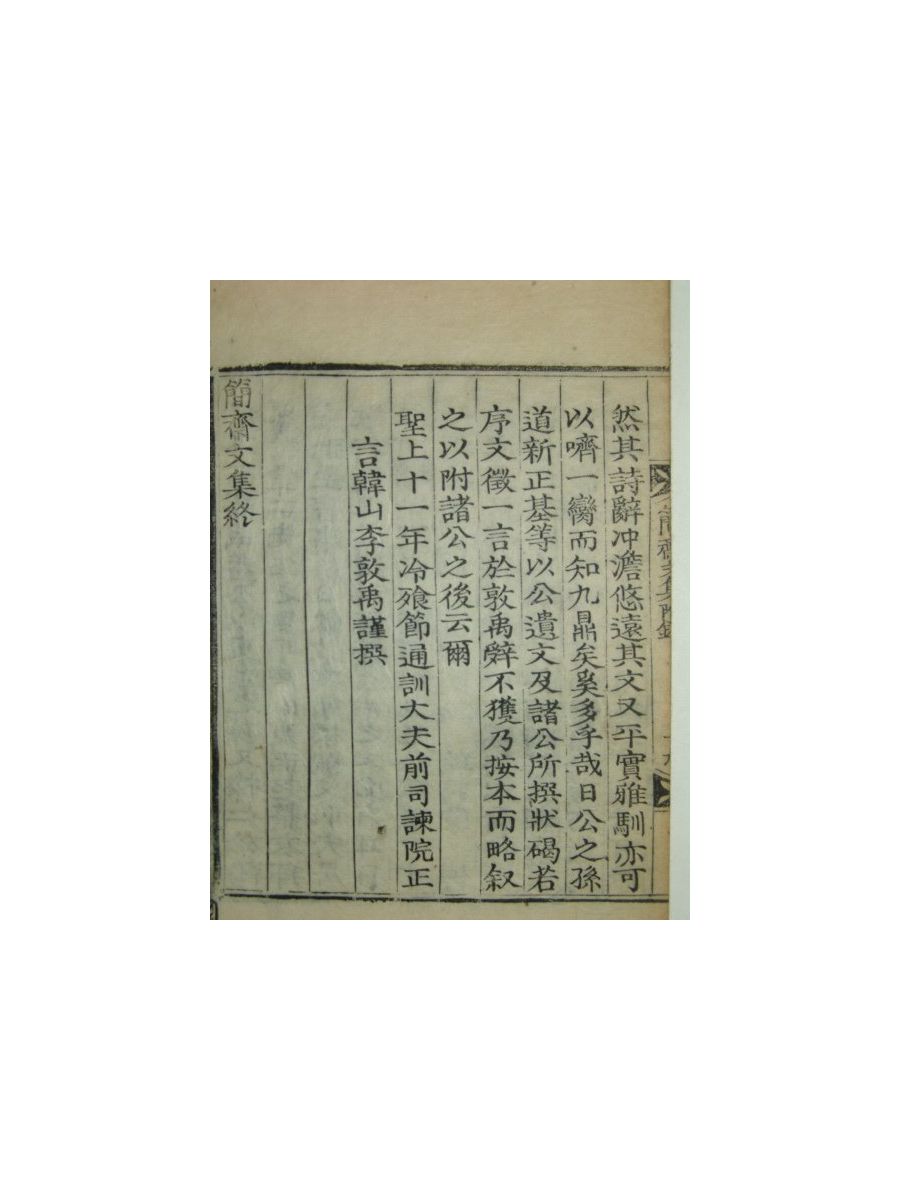 然其詩辭冲澹悠遠其文又平實雅馴亦可
以嚌一臠而知九鼎矣奚多乎哉日公之孫
道新正基等以公遺文及諸公所撰狀碣若
序文徵一言於敦禹辭不獲乃按本而略叙
之以附諸公之後云爾
聖上十一年冷飱節通訓大夫前司諫院正
言韓山李敦禹謹撰
簡齋文集終
簡齋文集附錄